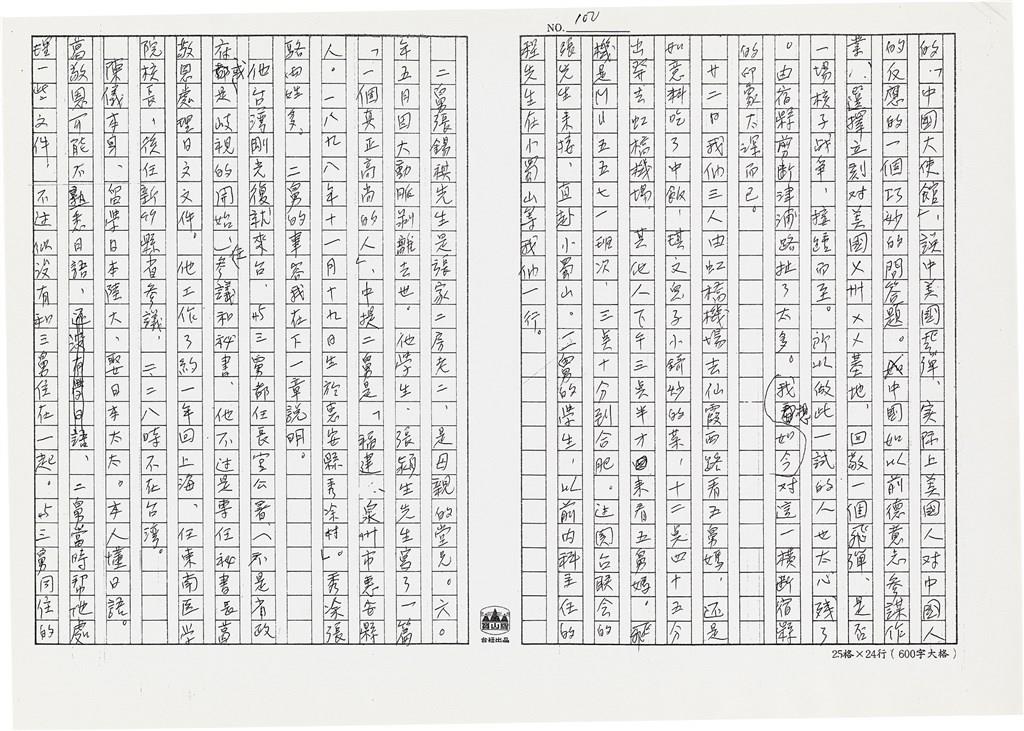 NO. 102
的,「中國大使館」,說中美國飛彈,實际上美國人对中國人
的反應的一個巧妙的問答題。中國如以前德意志參謀作
業,選擇立刻对美國义卅××基地,回敬一個飛彈,是否
一場核子战争,接踵而至。所以做此一試的人也太心残了
。由宿縣剪断津浦路扯了太多。(我想如今)对這一橫断宿縣
的印象太深而已。
廿二日我们三人由虹橋機場去仙霞西路看五舅媽,还是
如意料吃了中飯,琪文兒子小錡炒的菜,十二点四十五分
出發去虹橋機場。其他人下午三点半才来看五舅媽。飛
機是MU五五七一班次,三点十分到合肥。这囬台联会的
張先生未接,直赴小蜀山。二舅的學生,以前内科主任的
程先生在小蜀山等我们一行。
二舅張錫祺先生是張家二房老二,是母親的堂兄。六〇
年五月因大動脈剥離去世。他學生,張潁生先生寫了一篇
「一個真正高尚的人」,中提二舅是「福建:泉州市惠安縣
人。一八九八年十一月十九日生於惠安縣秀凃村」。秀凃張
駱两姓多。二舅的事容我在下一章說明。
他台湾剛光復就來台,与三舅都任長官公署(不是省政
府或是岐視的用始)任參議和秘書、他不过是專任秘書長葛
敬恩處理日文文件。他工作了約一年回上海、任東南医学
院校長,後任新竹縣省參議。二、二八時不在台湾。
陳儀本身、留學日本陸大、娶日本太太。本人懂日語。
葛敬恩可能不熟悉日語、还没有學日語、二舅當時帮他處
理一些文件,不过似没有和三舅住在一起。与三舅同住的
寶山牌
台祥出品
25格×24行(600字大格)